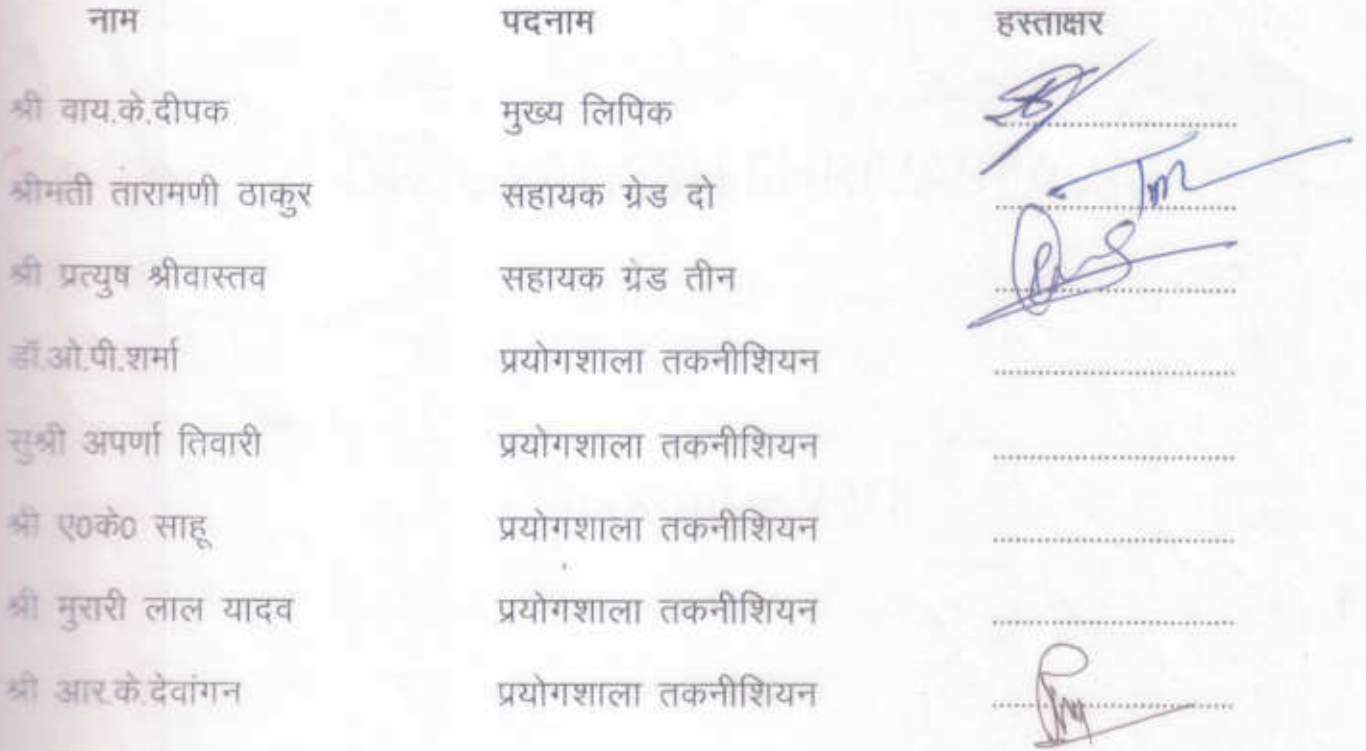 नाम पदनाम हस्ताक्षर
श्री वाय.के.दीपक मुख्य लिपिक ........................
श्रीमती तारामणी ठाकुर सहायक ग्रेड दो ........................
श्री प्रत्युष श्रीवास्तव सहायक ग्रेड तीन ........................
डॉ.ओ.पी.शर्मा प्रयोगशाला तकनीशियन ........................
सुश्री अपर्णा तिवारी प्रयोगशाला तकनीशियन ........................
श्री ए0के0 साहू प्रयोगशाला तकनीशियन ........................
श्री मुरारी लाल यादव प्रयोगशाला तकनीशियन ........................
श्री आर.के.देवांगन प्रयोगशाला तकनीशियन ........................